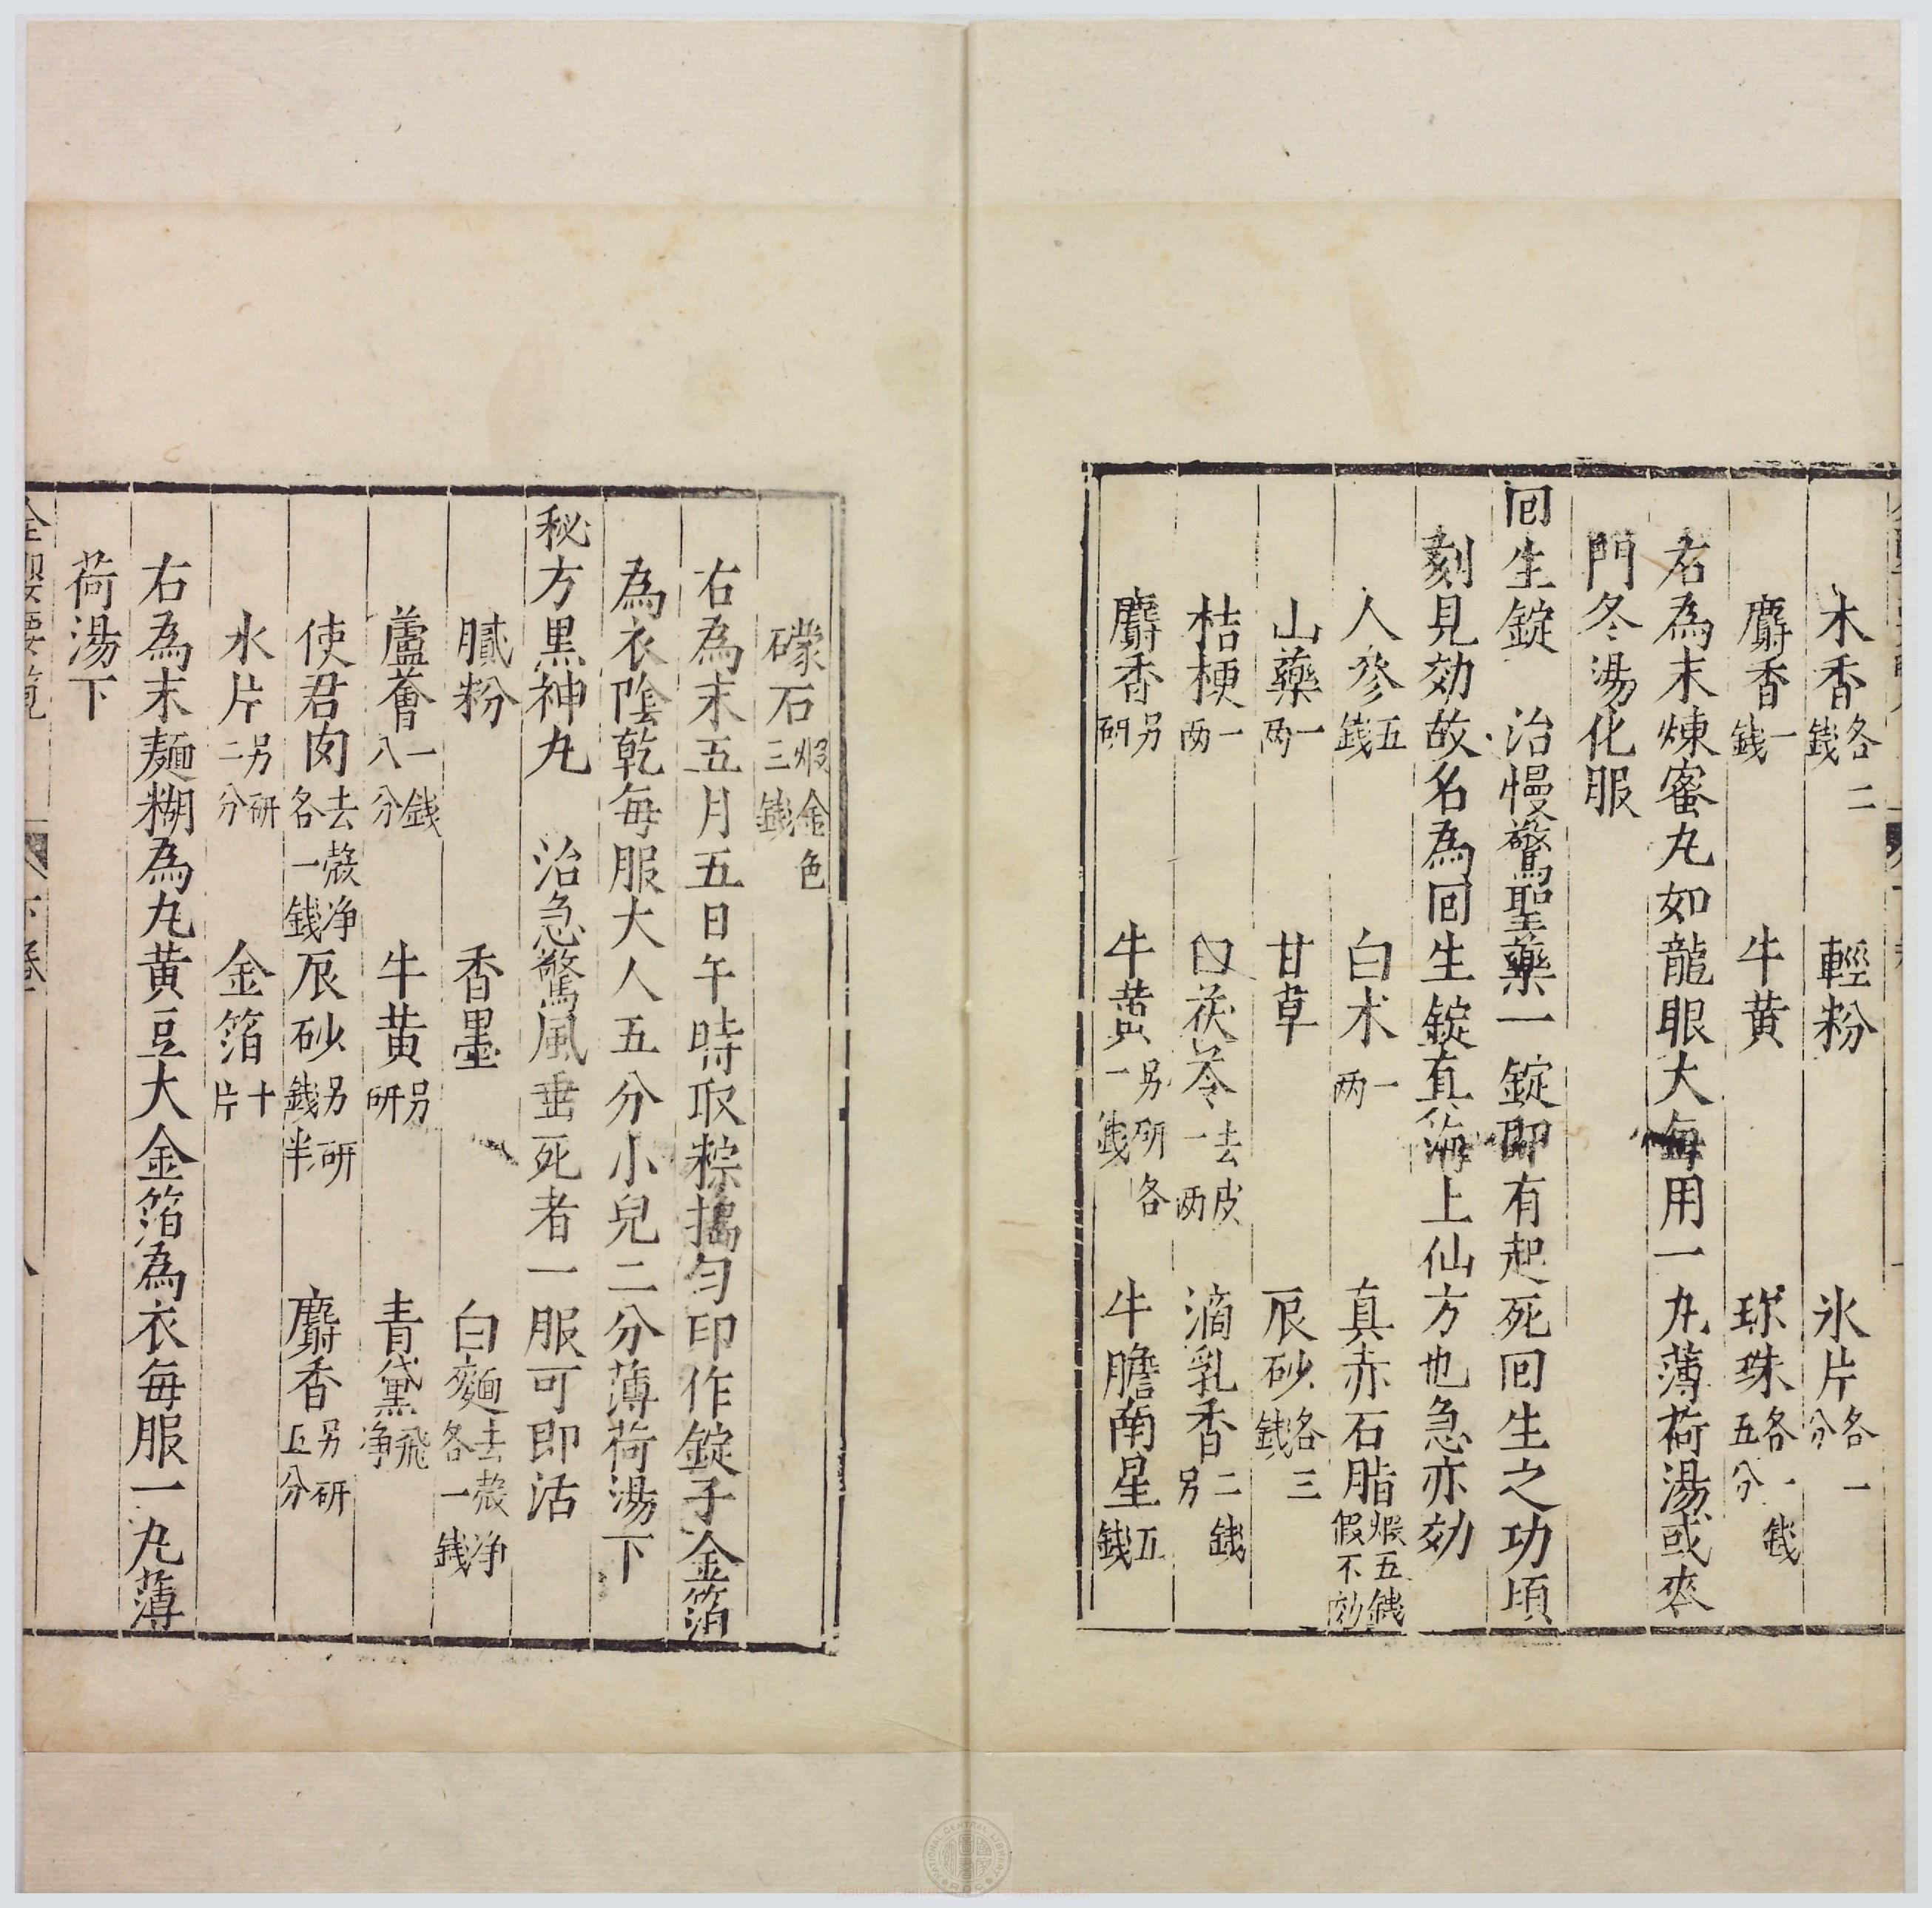 木香各二錢 輕粉 氷片各一分
麝香一錢 牛黄 珎珠各一錢五分
右為末煉蜜丸如龍眼大每用一丸薄荷湯或麥
門冬湯化服
回生錠 治慢驚聖藥一錠即有起死回生之功頃
刻見効故名為回生錠真海上仙方也急亦効
人參五錢 白术一两 真赤石脂煆五錢假不効
山藥一两 甘草 辰砂各三錢
桔梗一两 白茯苓去皮一两 滴乳香二錢另
麝香另研 牛黄另研各一錢 牛膽南星五錢
礞石煆金色三錢
右為末五月五日午時取粽搗匀印作錠子金箔
為衣陰乾每服大人五分小兒二分薄荷湯下
秘方黒神丸 治急驚風垂死者一服可即活
膩粉 香墨 白麵去殻净各一錢
蘆薈一錢八分 牛黄另研 青黛飛净
使君肉去殻净各一錢 辰砂另研錢半 麝香另研五分
氷片另研二分 金箔十片
右為末麺糊為丸黄豆大金箔為衣每服一丸薄
荷湯下